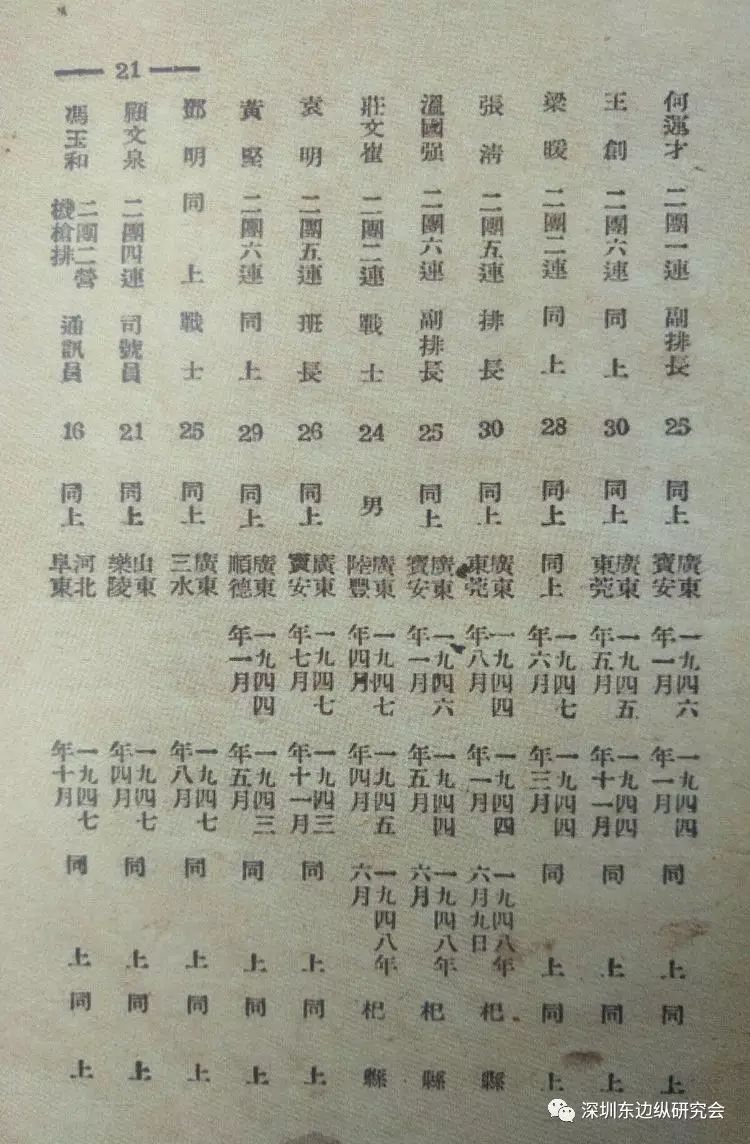 21
何運才 二團一連 副排長 25 同上 廣東寶安 一九四六年一月 一九四四年一月 同上 同上
王創 二團六連 同上 30 同上 廣東東莞 一九四五年五月 一九四四年十一月 同上 同上
梁暖 二團二連 同上 28 同上 同上 一九四七年六月 一九四四年三月 同上 同上
張清 二團五連 排長 30 同上 廣東東莞 一九四四年八月 一九四四年一月 一九四八年六月九日 杞縣
溫國强 二團六連 副排長 25 同上 廣東寶安 一九四六年一月 一九四四年五月 一九四八年六月 杞縣
莊文崔 二團二連 戰士 24 男 廣東陸豐 一九四七年四月 一九四五年四月 一九四八年六月 杞縣
袁明 二團五連 班長 26 同上 廣東寶安 一九四七年七月 一九四三年十一月 同上 同上
黃堅 二團六連 同上 29 同上 廣東順德 一九四四年一月 一九四三年五月 同上 同上
鄧明 同上 戰士 25 同上 廣東三水 一九四七年八月 同上 同上
顧文泉 二團四連 司號員 21 同上 山東樂陵 一九四七年四月 同上 同上
馮玉和 二團二營機槍排 通訊員 16 同上 河北阜東 一九四七年十月 同上 同上
深圳东边纵研究会